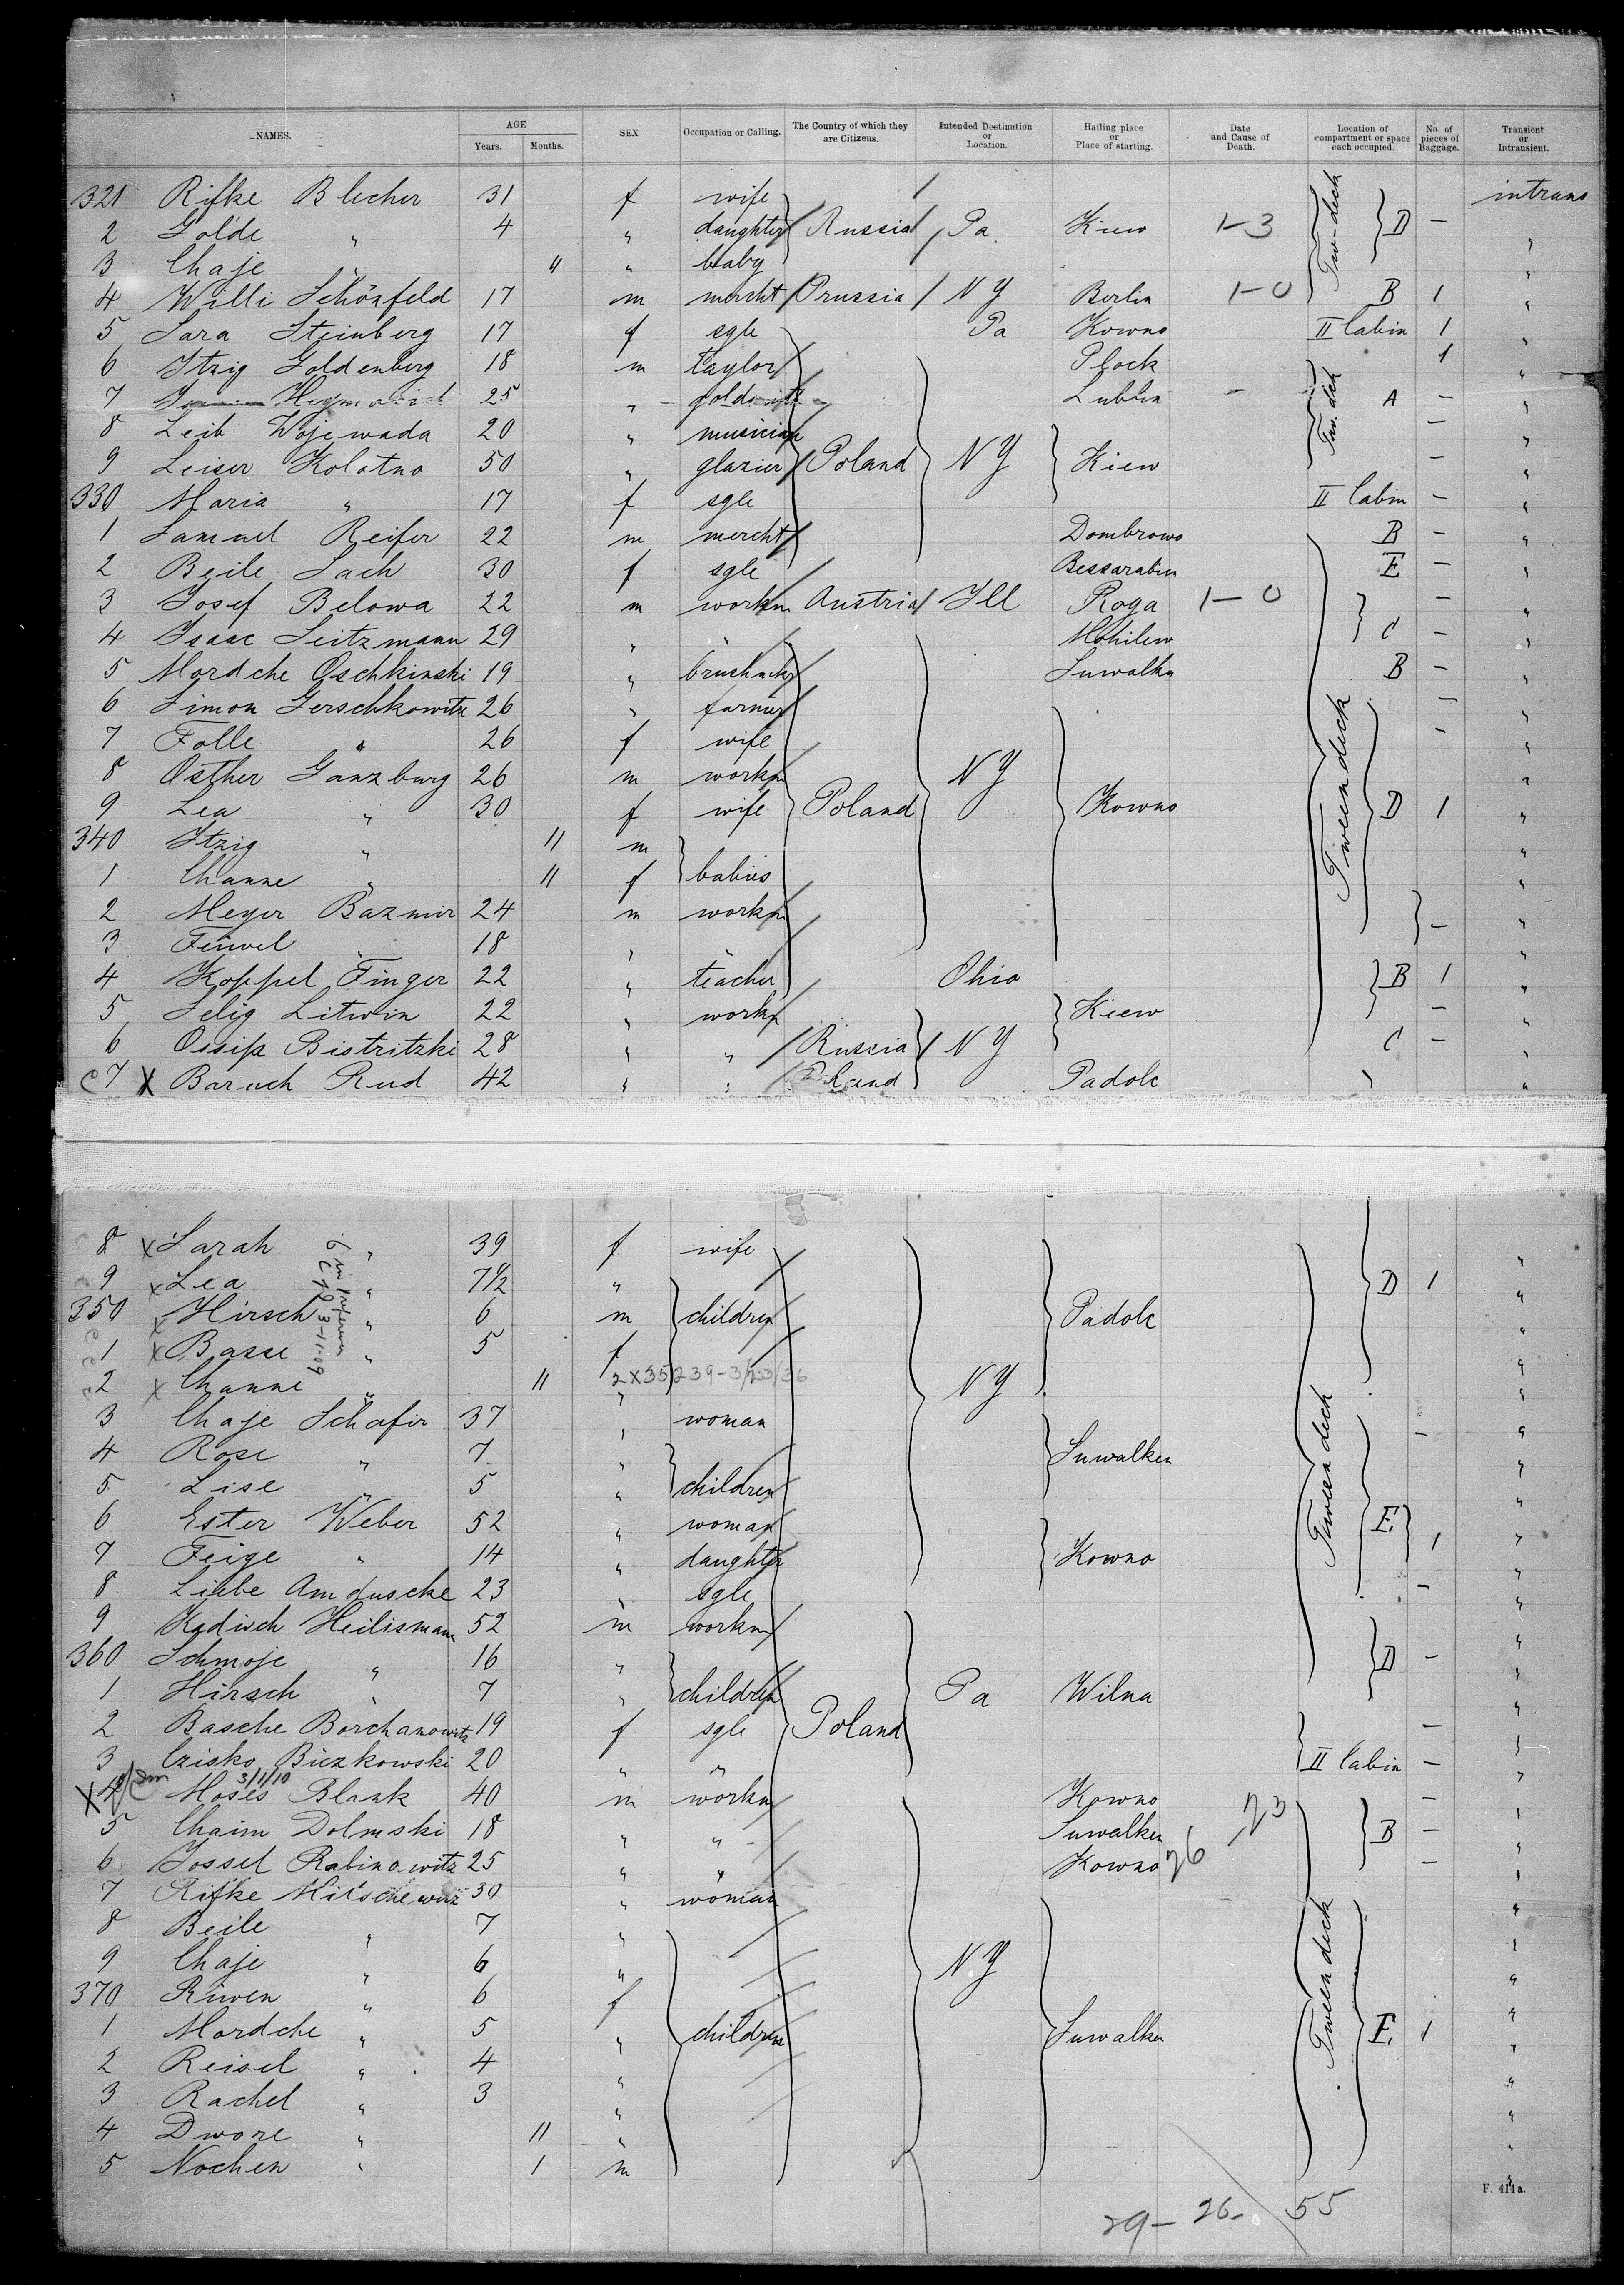 NAMES. AGE Years. Months. SEX Occupation or Calling. The Country of which they are Citizens. Intended Destination or Location. Hailing place or Place of starting. Date and Cause of Death. Location of compartment or space each occupied. No. of pieces of Baggage. Transient or Intransient.
321 Rifke Blecher 31 f wife intrans
2 Golde " 4 " daughter Russia Pa Kiew 1-3 Twdeck D - "
3 Chaje " 11 " baby "
4 Willi Schönfeld 17 m mercht Prussia NY Berlin 1-0 B 1 "
5 Sara Steinberg 17 f sgle Pa Kowno II Cabin 1 "
6 Itzig Goldenberg 18 m taylor Plock 1 "
7 25 " Lublin - Tw. dck A - "
8 Leib Wojewada 20 " musician - "
9 Leiser Kolatno 50 " glazier Poland NY Kiew - "
330 Maria " 17 f sgle II Cabin - "
1 Samuel Reifer 22 m mercht Dombrowo B - "
2 Beile Sach 30 f sgle Bessarabien E - "
3 Josef Belowa 22 m workm Austria Ill Roga 1-0 - "
4 Isaac Seitzmann 29 " " Mohilew C - "
5 Mordche Oschkinski 19 " Suwalkn B - "
6 Simon Gerschkowitz 26 " farmer - "
7 Folle " 26 f wife - "
8 Osther Ganzburg 26 m workm NY "
9 Lea " 30 f wife Poland Kowno Tween deck D 1 "
340 Itzig " 11 m "
1 Channe " 11 f babies "
2 Meyer Bazmir 24 m workm "
3 Feiwel " 18 " " - "
4 Koppel Finger 22 " teacher Ohio B 1 "
5 Selig Litwin 22 " workm Kiew - "
6 Ossip Bistritzki 28 " " Russia NY C - "
c 7 X Baruch Rud 42 " " Poland Padolc "
8 X Sarah " 39 f wife "
9 X Lea " 7 1/2 " D 1 "
350 X Hirsch " 6 m children Padolc "
1 X Basse " 5 f "
2 X Channe " 11 " 2X35239-3/23/36 NY "
3 Chaje Schafir 37 " woman - "
4 Rose " 7 " Suwalken "
5 Lise " 5 " children Tween deck "
6 Ester Weber 52 " woman E "
7 Feige " 14 " daughtr Kowno 1 "
8 Liebe Amduscke 23 " sgle - "
9 Kadisch Heilismann 52 m workm "
360 Schmoje " 16 " D - "
1 Hirsch " 7 " children Pa Wilna "
2 Basche Borchanowitz 19 f sgle Poland - "
3 Czisko Biczkowski 20 " " II Cabin - "
3/1/10
X 4 Moses Blank 40 m workm Kowno - "
5 Chaim Dolmski 18 " " Suwalken 23 B - "
6 Jossel Rabinowitz 25 " " Kowno 26 - "
7 Rifke 30 " woman "
8 Beile " 7 " "
9 Chaje " 6 " NY "
370 Ruwen " 6 f Tween deck "
1 Mordche " 5 " children Suwalkn E 1 "
2 Reisel " 4 " "
3 Rachel " 3 " "
4 Dwore " 11 " "
5 Nochen " 1 m "
F. 414a.
29- 26- 55